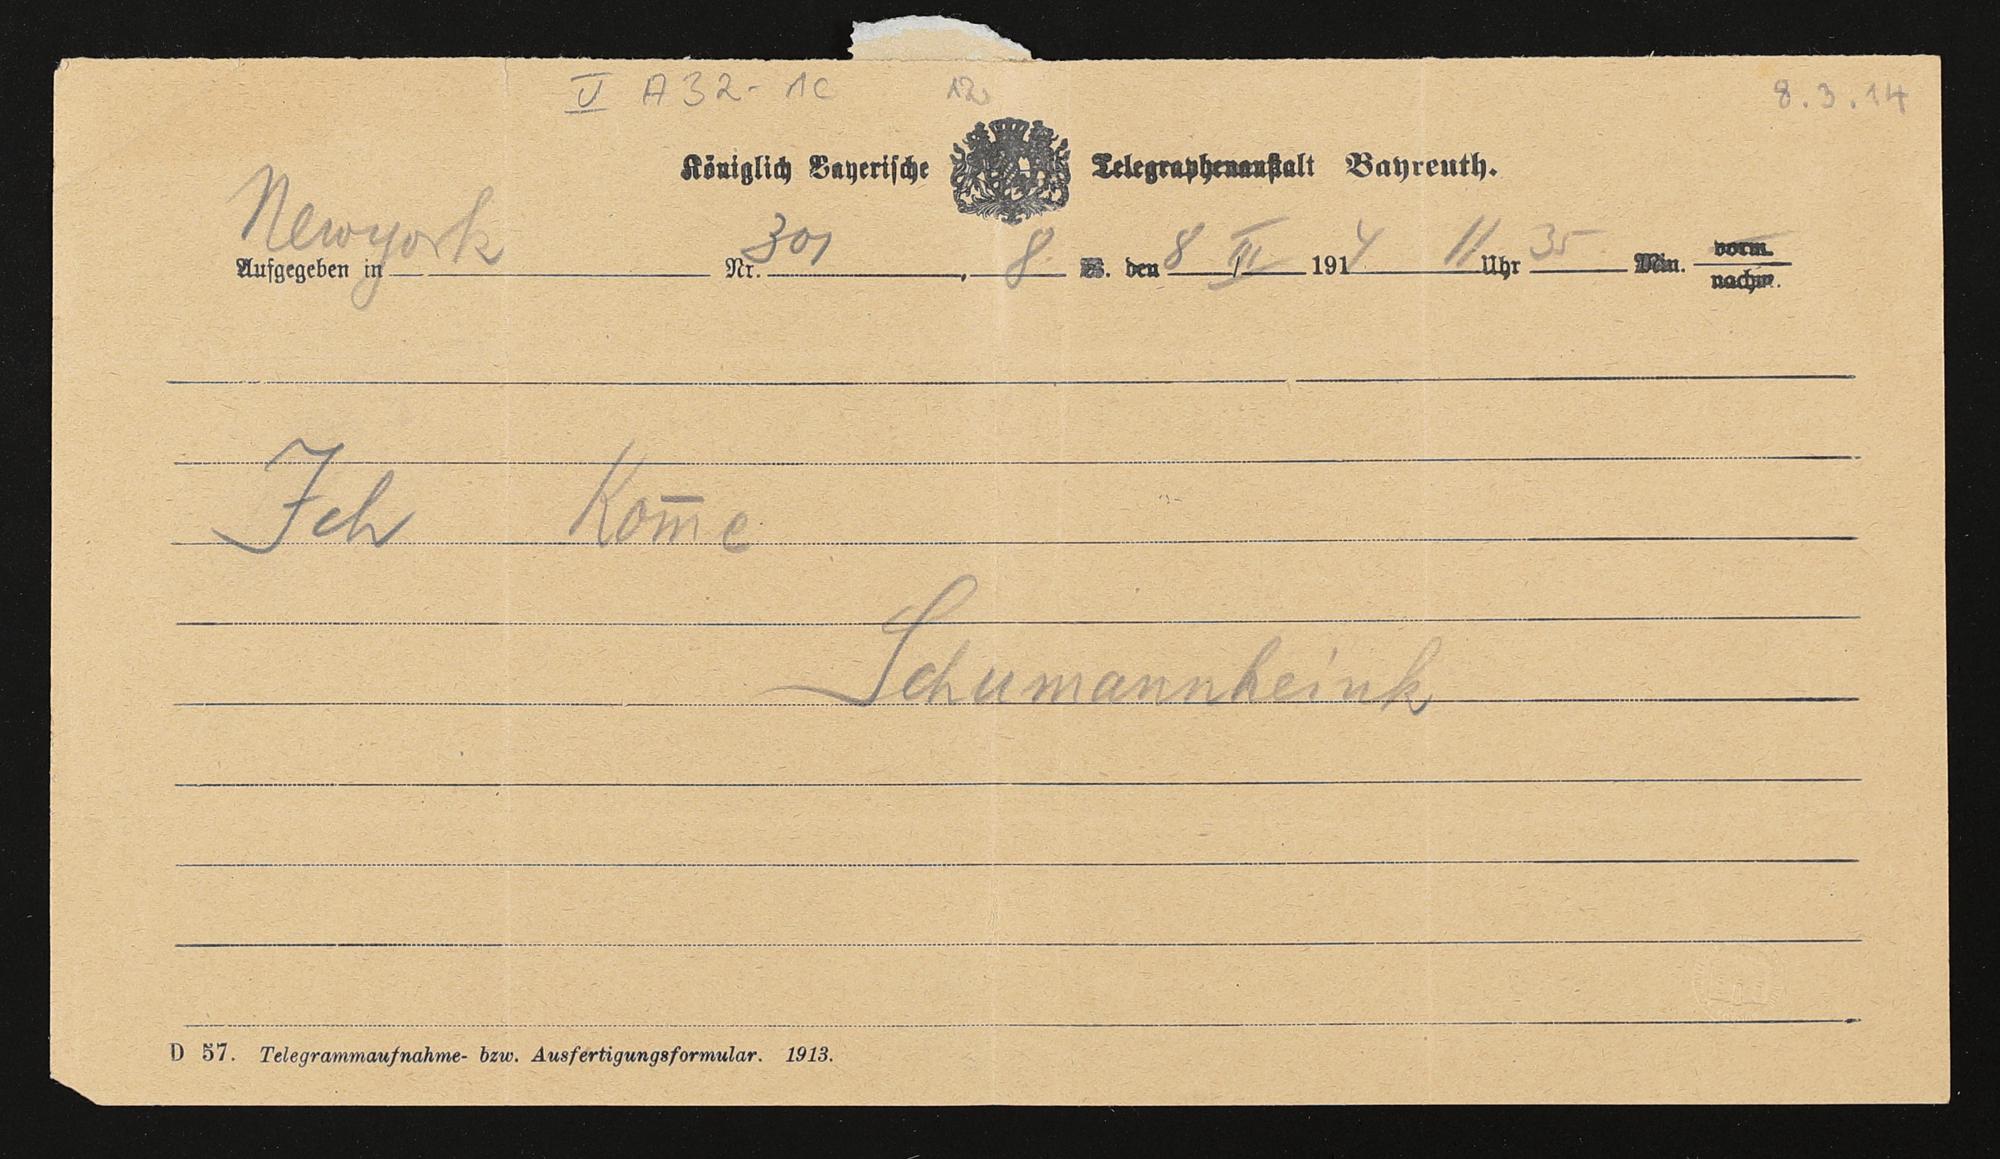 V A 32-1c 12 8.3.14
Königlich Bayerische Telegraphenanstalt Bayreuth.
Aufgegeben in Newyork Nr. 301, 8. W. den 8 III 1914 11 Uhr 35 Min. vorm.
nachm.
Ich kom̅e
Schumannheink
D 57. Telegrammaufnahme- bzw. Ausfertigungsformular. 1913.